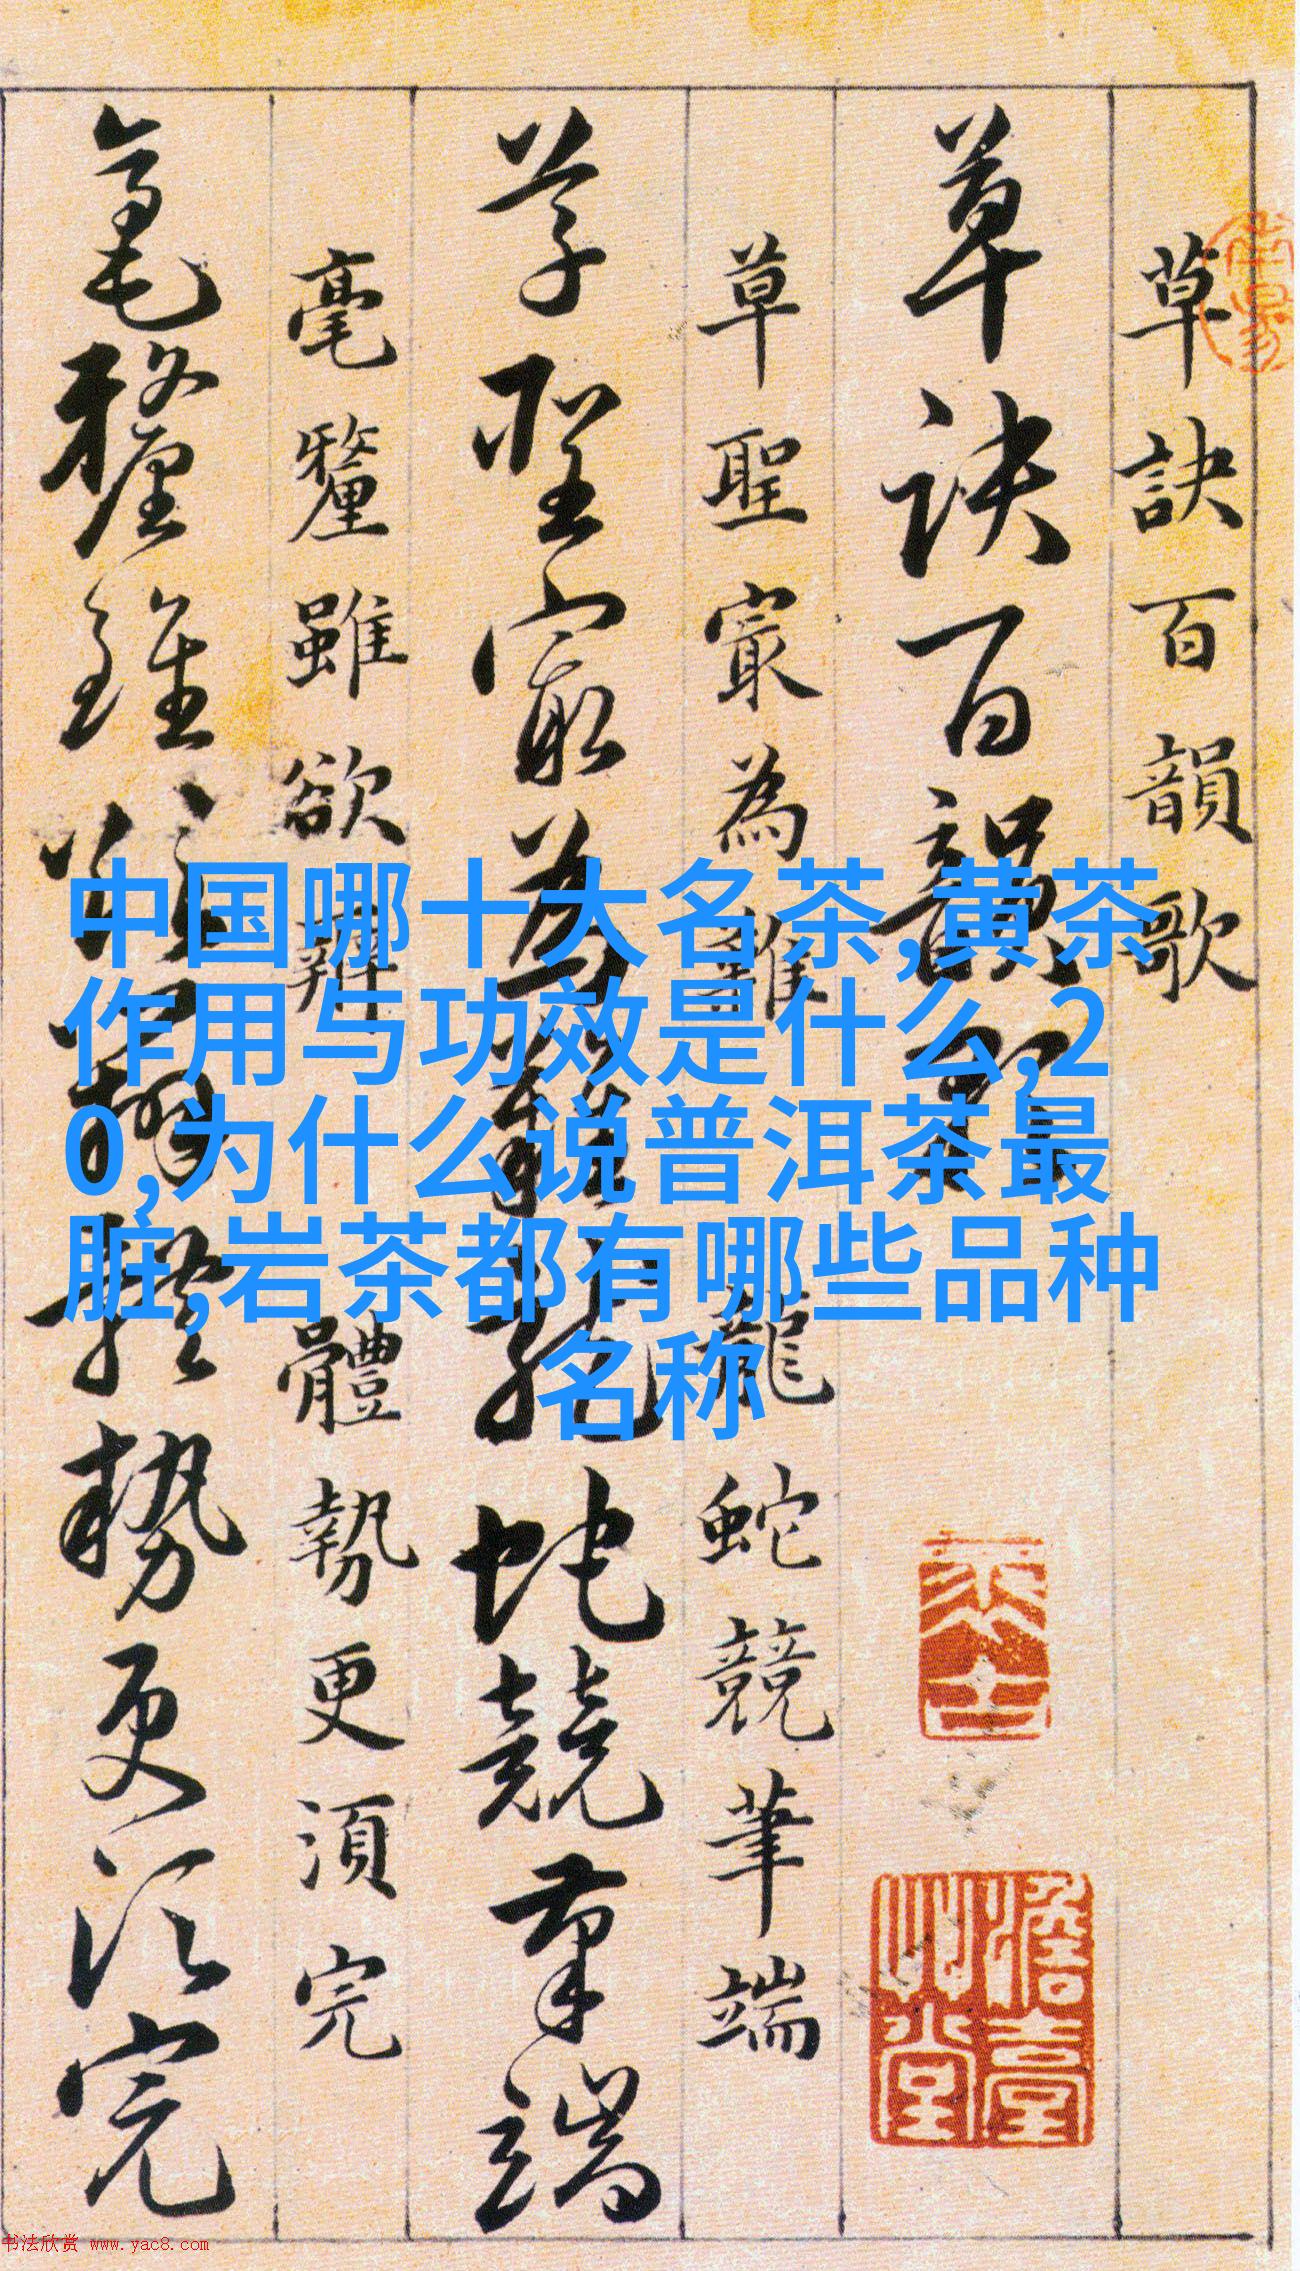 草訣百韻歌
草訣百韻歌
草聖寂為難龍蛇競筆端
草聖寂為難龍蛇競筆端
毫釐雖欲辨體勢更須完
毫釐雖欲辨體勢更須完
中国哪十大名茶,黄茶
作用与功效是什么,2
0,为什么说普洱茶最
脏,岩茶都有哪些品种
名称
书法欣赏 www.yac8.com